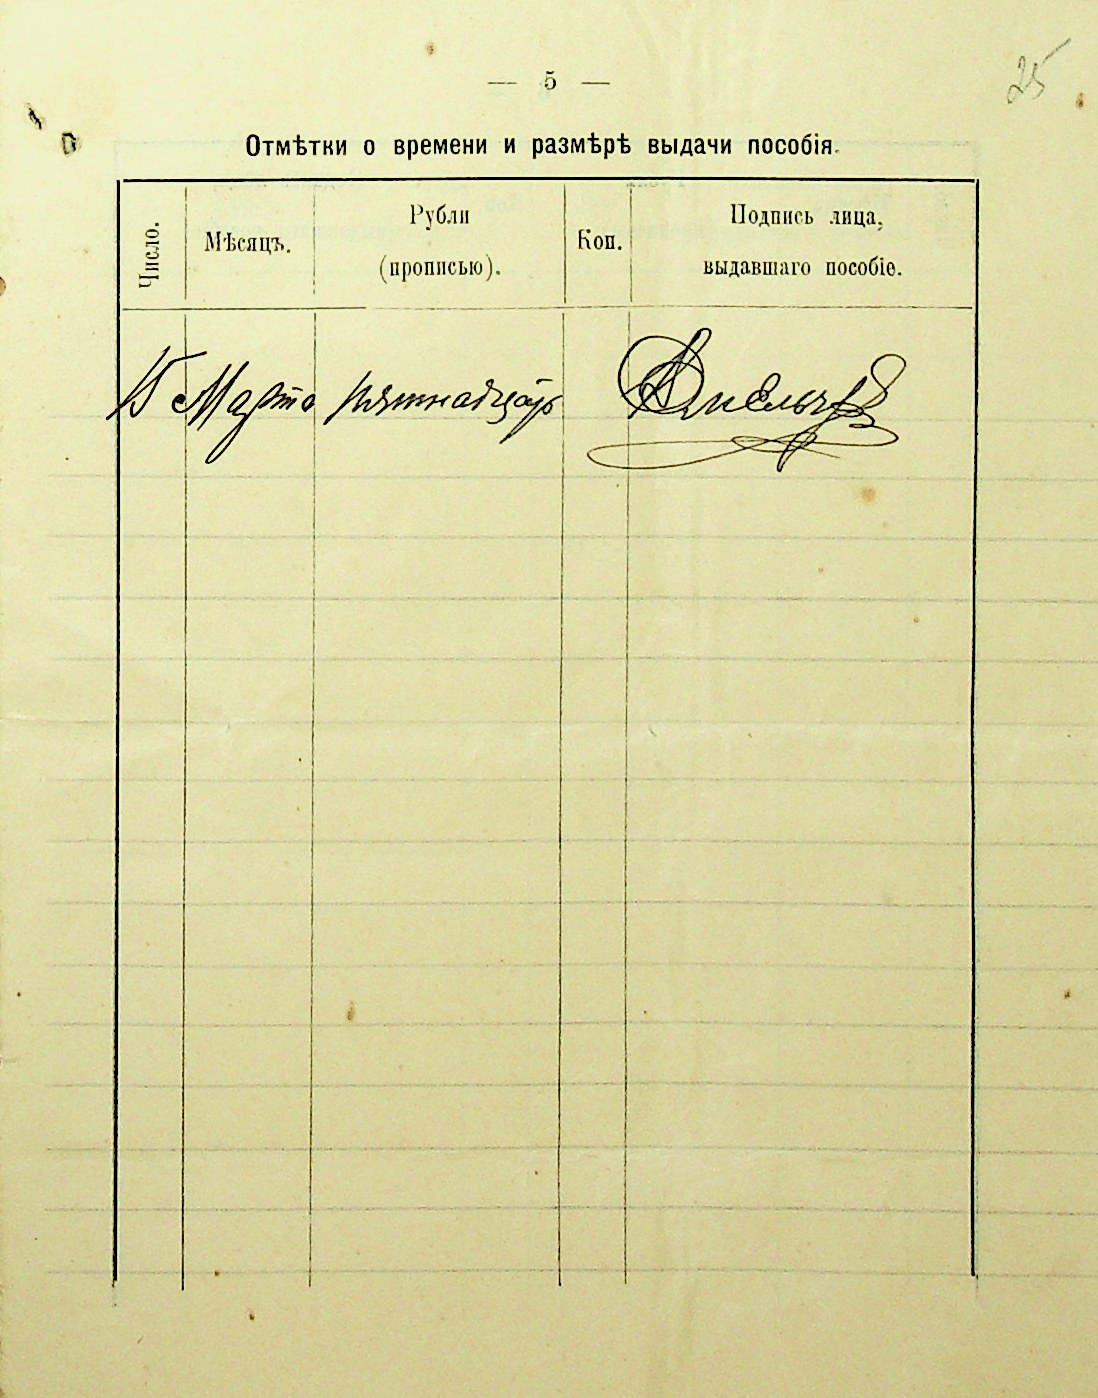 — 5 —
25
Отмѣтки о времени и размѣрѣ выдачи пособія.
Число.
Мѣсяцъ.
Рубли
(прописью).
Коп.
Подпись лица,
выдавшаго пособіе.
15 Марта пятнадцать